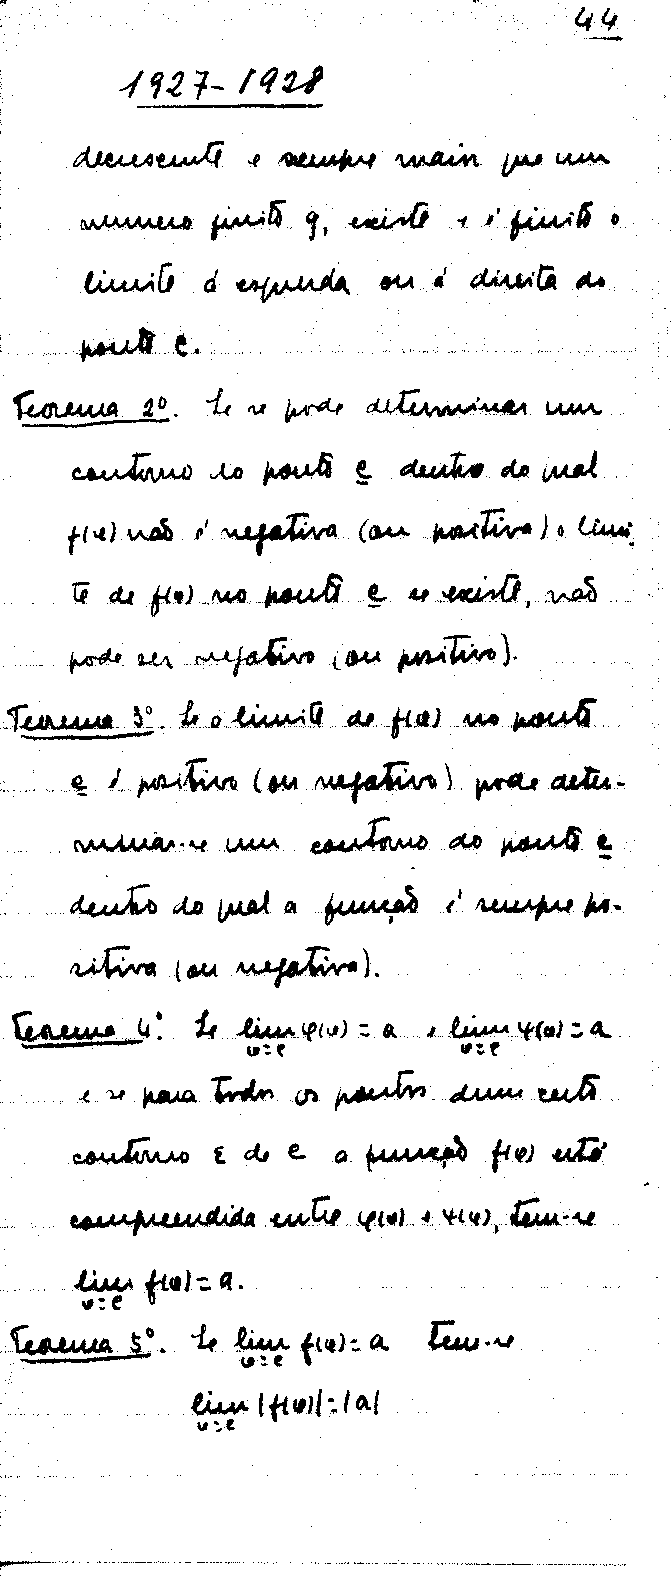 44
1927-1928
decrescente e sempre maior que um
numero finito g, existe e é finito o
limite á esquerda ou á direita do
ponto c.
Teorema 2º. Se se pode determinar um
contorno do ponto c dentro do qual
f(x) não é negativa (ou positiva) o limi-
te de f(x) no ponto c se existe, não
pode ser negativo (ou positivo).
Teorema 3º. Se o limite de f(x) no ponto
c é positivo (ou negativo) pode deter-
minar-se um contorno do ponto c
dentro do qual a função é sempre po-
sitiva (ou negativa).
Teorema 4º. Se lim φ(x) = a e lim ψ(x) = a
x=c x=c
e se para todos os pontos dum certo
contorno ε de c a função f(x) está
compreendida entre φ(x) e ψ(x), tem-se
lim f(x) = a.
x=c
Teorema 5º. Se lim f(x) = a tem-se
x=c
lim |f(x)| = |a|
x=c